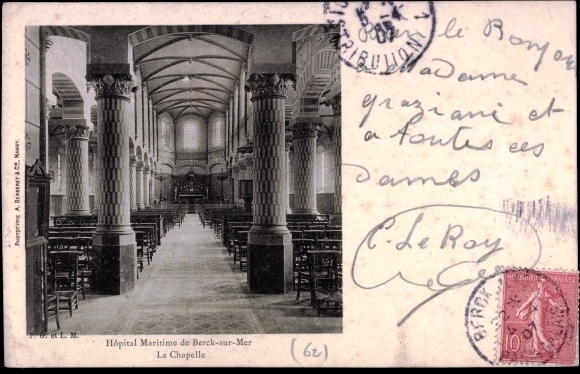 le Bonjour
Madame
graziani et
a toutes ces
dames
C. Le Roy
PHOTOTYPIE A. BERGERET & Cie, NANCY.
P. G. et L. M.
Hôpital Maritime de Berck-sur-Mer
La Chapelle
(62)
DISTRIBUTION
5 -4
07
BERCK
10